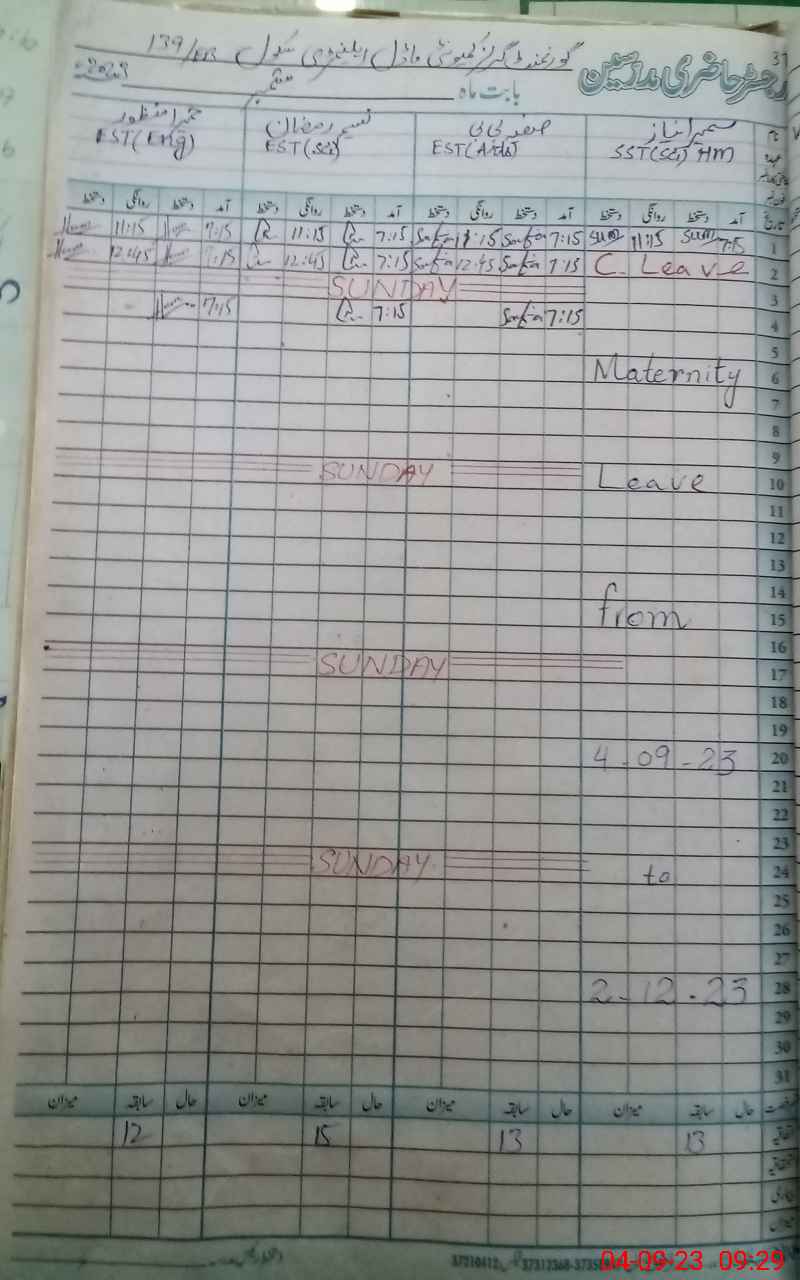 37
رجسٹر حاضری مدرسین
گورنمنٹ گرلز کمیونٹی ماڈل ایلیمنٹری سکول 139/
بابت ماہ ستمبر 2023
سمیرا نیاز صغریٰ بی بی نسیم رمضان حمیرا منظور
SST(Sci) HM EST(Arts) EST(Sci) EST(Eng)
آمد دستخط روانگی دستخط آمد دستخط روانگی دستخط آمد دستخط روانگی دستخط آمد دستخط روانگی دستخط
1 7:15 11:15 7:15 Safia 11:15 Safia 7:15 11:15 7:15 11:15
2 C. Leave 7:15 Safia 12:45 Safia 7:15 12:45 7:15 12:45
3 SUNDAY
4 7:15 Safia 7:15 7:15
5
6 Maternity
7
8
9
10 Leave SUNDAY
11
12
13
14
15 from
16
17 SUNDAY
18
19
20 4-09-23
21
22
23
24 to SUNDAY
25
26
27
28 2-12-23
29
30
31
حال سابقہ میزان حال سابقہ میزان حال سابقہ میزان حال سابقہ میزان
اتفاقیہ 13 13 15 12
میزان
37210412
04-09-23 09:29